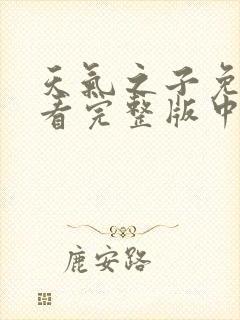 天氣之子免
看完整版中
鹿安路